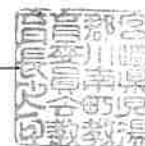 宮崎県児湯
郡川南町教
育委員会教
育長之印